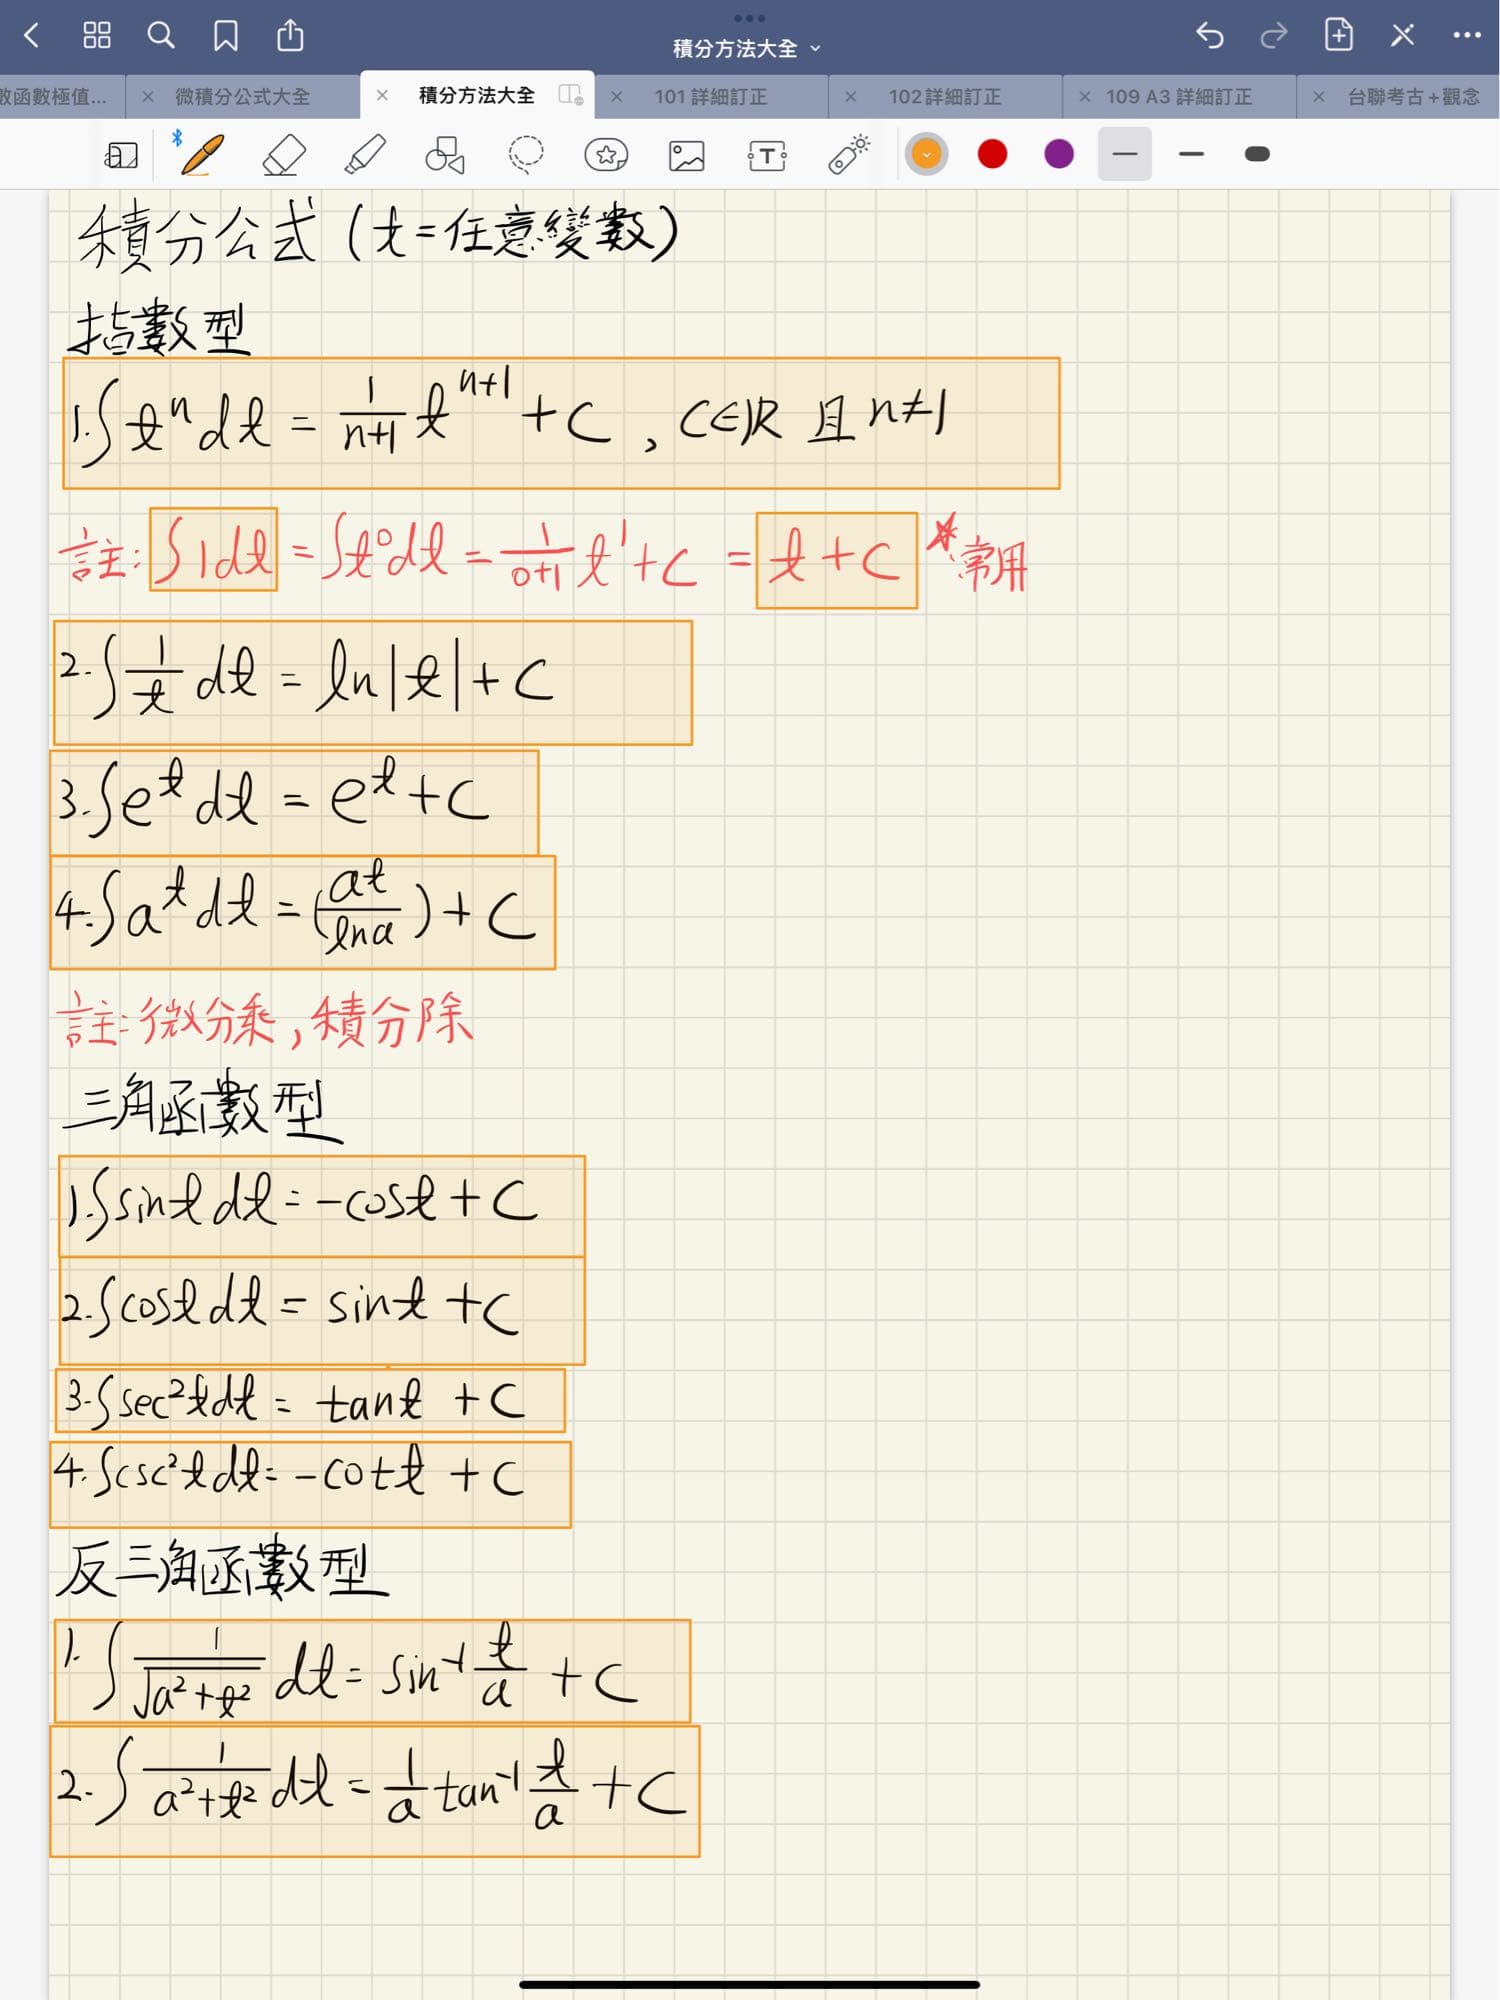 積分方法大全
數函數極值... 微積分公式大全 積分方法大全 101 詳細訂正 102詳細訂正 109 A3 詳細訂正 台聯考古+觀念
積分公式 (t=任意變數)
指數型
1.∫tⁿdt = 1/(n+1) tⁿ⁺¹ + C , C∈R 且 n≠1
註: ∫1dt = ∫t⁰dt = 1/(0+1) t¹+C = t+C ★常用
2.∫1/t dt = ln|t|+C
3.∫eᵗdt = eᵗ+C
4.∫aᵗdt = (at/lna)+C
註:微分乘,積分除
三角函數型
1.∫sint dt = -cost + C
2.∫cost dt = sint +C
3.∫sec²t dt = tant +C
4.∫csc²t dt = -cot t +C
反三角函數型
1.∫1/√(a²+t²) dt = sin⁻¹ t/a + C
2.∫1/(a²+t²) dt = 1/a tan⁻¹ t/a + C